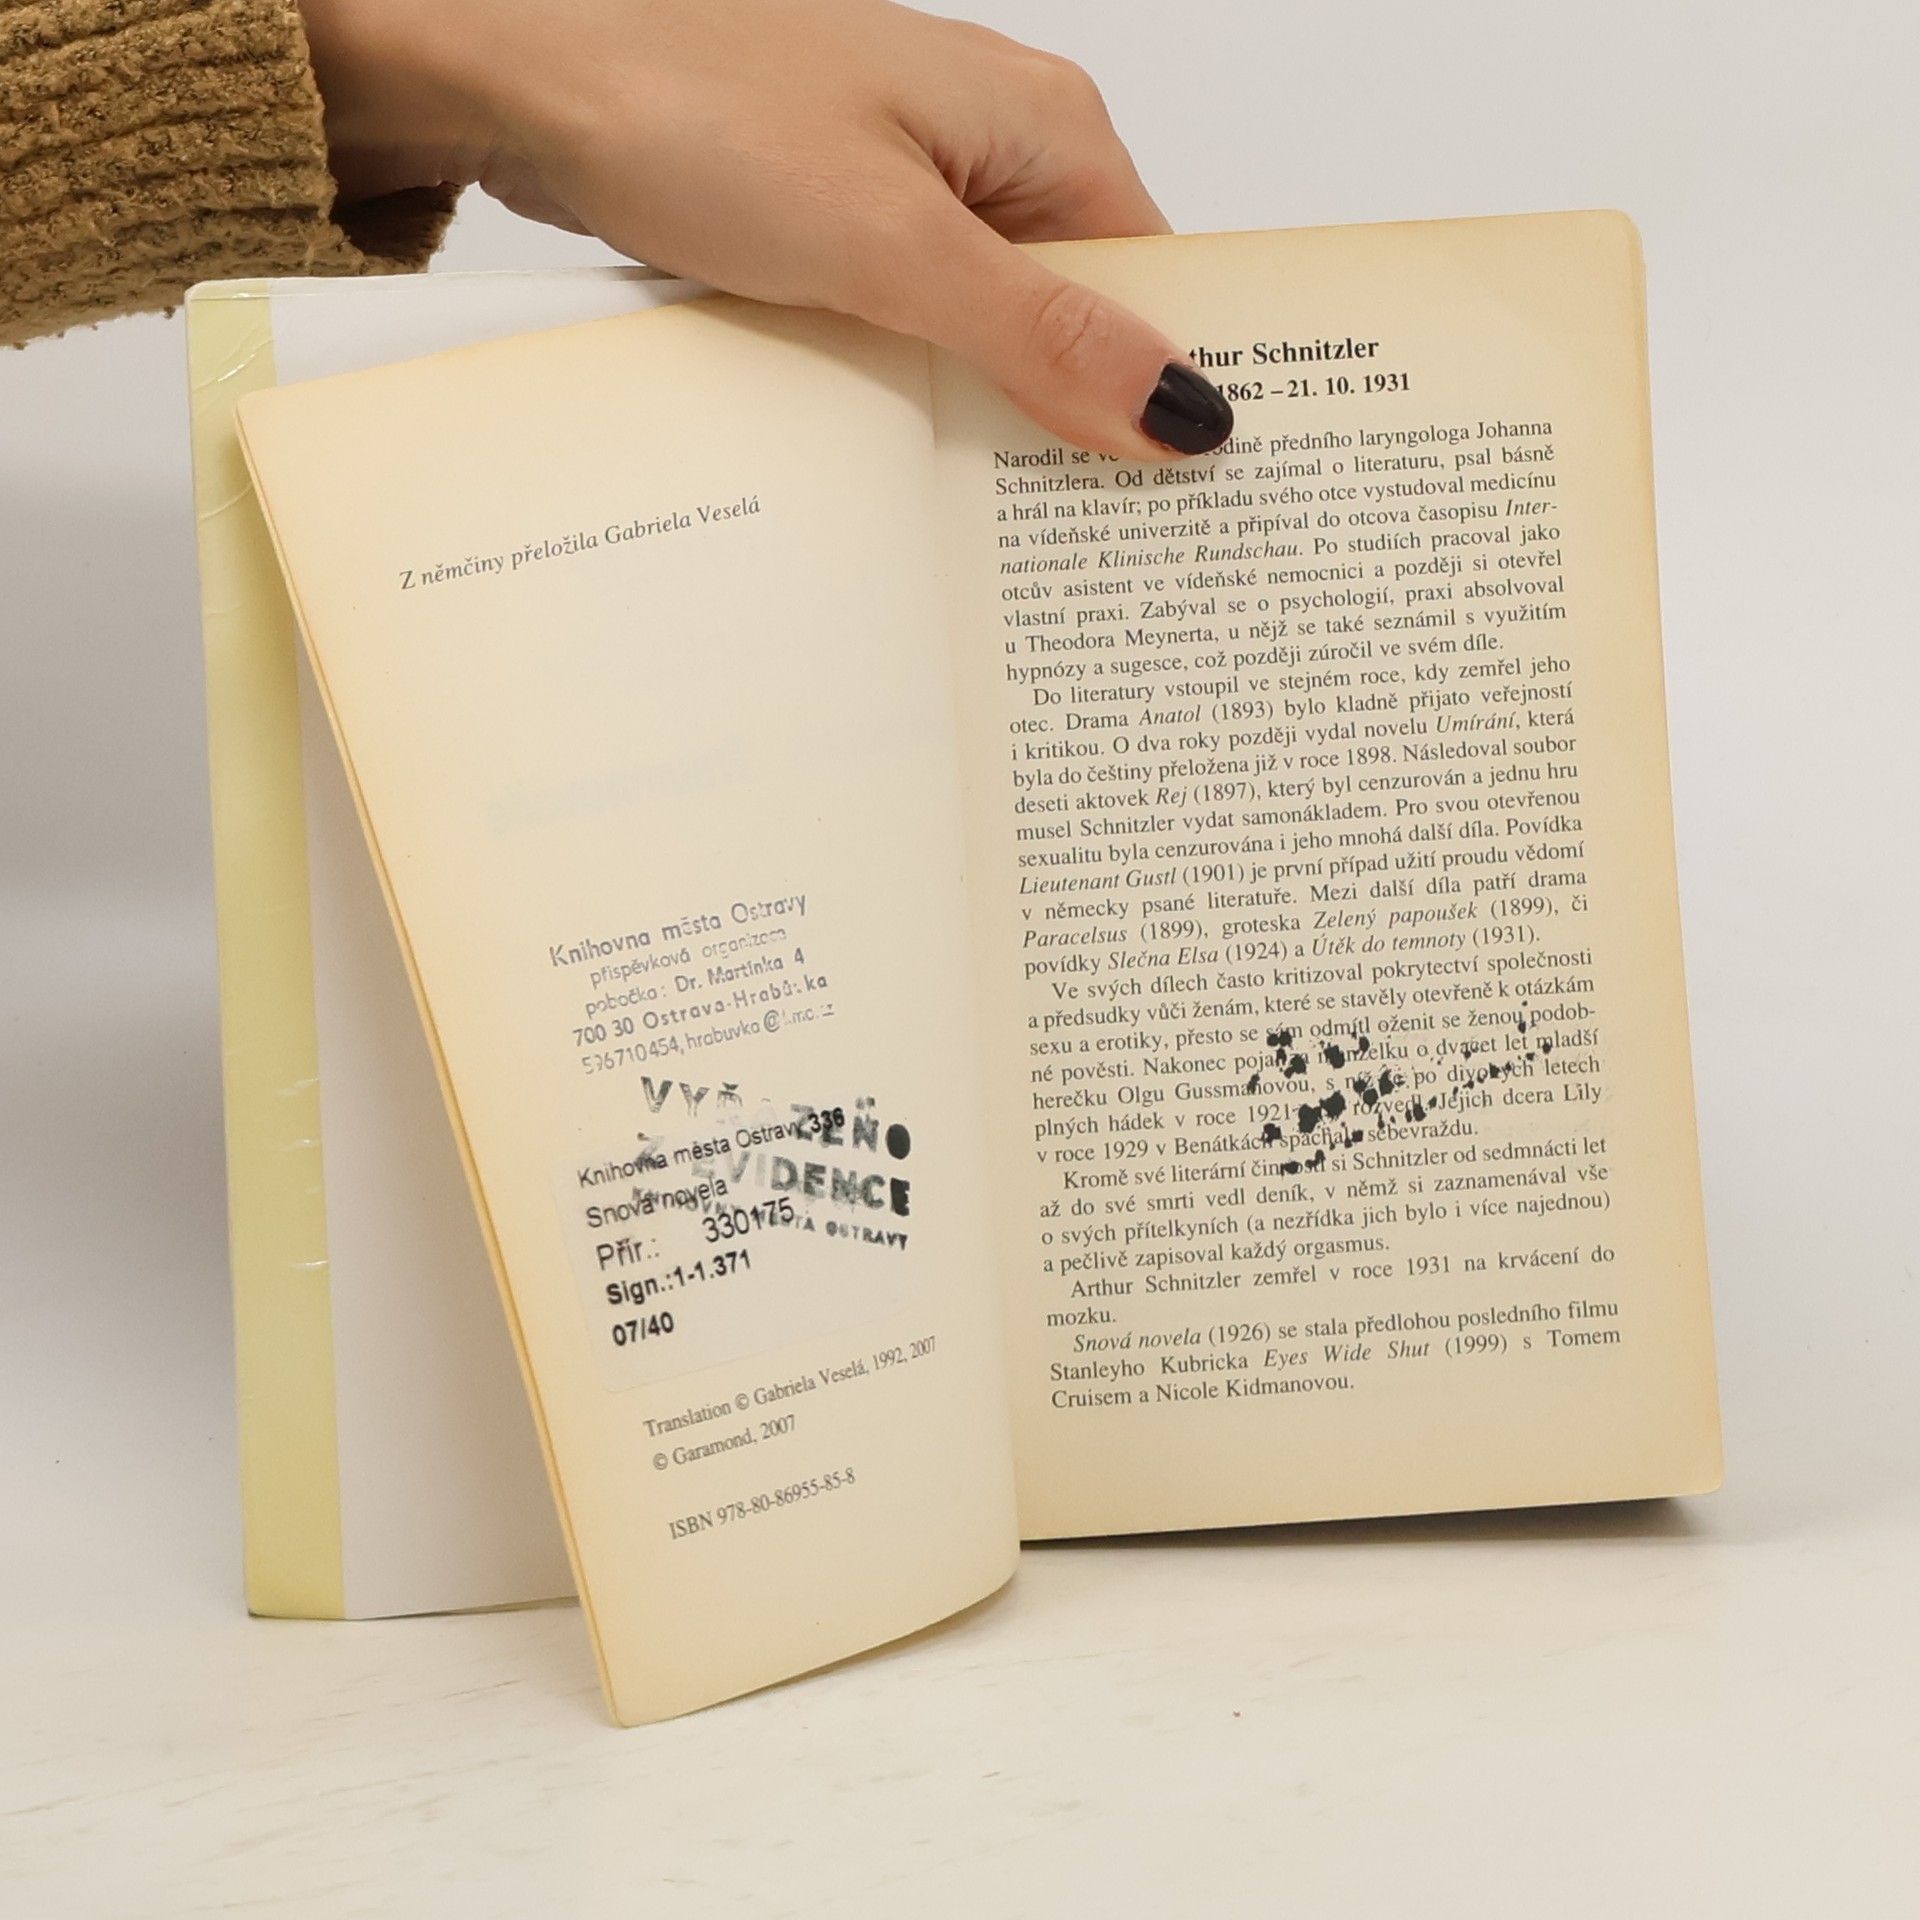 Z němčiny přeložila Gabriela Veselá
Knihovna města Ostravy
příspěvková organizace
pobočka: Dr. Martínka 4
700 30 Ostrava-Hrabůvka
596710454, hrabuvka@
EVIDENCE
MĚSTA OSTRAVY
Knihovna města Ostravy 336
Snová novela
Přír.: 330175
Sign.:1-1.371
07/40
Translation © Gabriela Veselá, 1992, 2007
© Garamond, 2007
ISBN 978-80-86955-85-8
thur Schnitzler
1862 – 21. 10. 1931
Narodil se ve rodině předního laryngologa Johanna
Schnitzlera. Od dětství se zajímal o literaturu, psal básně
a hrál na klavír; po příkladu svého otce vystudoval medicínu
na vídeňské univerzitě a připíval do otcova časopisu Inter-
nationale Klinische Rundschau. Po studiích pracoval jako
otcův asistent ve vídeňské nemocnici a později si otevřel
vlastní praxi. Zabýval se o psychologií, praxi absolvoval
u Theodora Meynerta, u nějž se také seznámil s využitím
hypnózy a sugesce, což později zúročil ve svém díle.
Do literatury vstoupil ve stejném roce, kdy zemřel jeho
otec. Drama Anatol (1893) bylo kladně přijato veřejností
i kritikou. O dva roky později vydal novelu Umírání, která
byla do češtiny přeložena již v roce 1898. Následoval soubor
deseti aktovek Rej (1897), který byl cenzurován a jednu hru
musel Schnitzler vydat samonákladem. Pro svou otevřenou
sexualitu byla cenzurována i jeho mnohá další díla. Povídka
Lieutenant Gustl (1901) je první případ užití proudu vědomí
v německy psané literatuře. Mezi další díla patří drama
Paracelsus (1899), groteska Zelený papoušek (1899), či
povídky Slečna Elsa (1924) a Útěk do temnoty (1931).
Ve svých dílech často kritizoval pokrytectví společnosti
a předsudky vůči ženám, které se stavěly otevřeně k otázkám
sexu a erotiky, přesto se sám odmítl oženit se ženou podob-
né pověsti. Nakonec pojal za manželku o dvacet let mladší
herečku Olgu Gussmanovou, s níž se po divokých letech
plných hádek v roce 1921 rozvedl. Jejich dcera Lily
v roce 1929 v Benátkách spáchala sebevraždu.
Kromě své literární činnosti si Schnitzler od sedmnácti let
až do své smrti vedl deník, v němž si zaznamenával vše
o svých přítelkyních (a nezřídka jich bylo i více najednou)
a pečlivě zapisoval každý orgasmus.
Arthur Schnitzler zemřel v roce 1931 na krvácení do
mozku.
Snová novela (1926) se stala předlohou posledního filmu
Stanleyho Kubricka Eyes Wide Shut (1999) s Tomem
Cruisem a Nicole Kidmanovou.